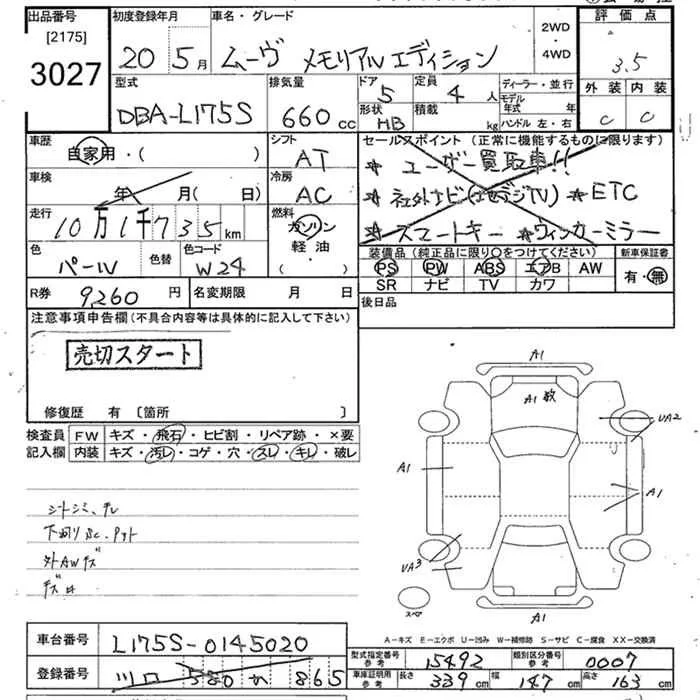 出品番号 初度登録年月 車名・グレード 2WD・4WD 評価点
[2175]
3027 20 5月 ムーヴ メモリアルエディション 3.5
型式 排気量 ドア 5 定員 4人 ディーラー・並行 外装 内装
DBA-L175S 660cc 形状 HB 積載 kg モデル年式 年 C C
ハンドル 左・右
車歴 シフト セールスポイント (正常に機能するものに限ります)
自家用・( ) AT ★ ユーザー買取車!!
車検 冷房
年 月( 日) AC ★社外ナビ(地デジTV) ★ETC
走行 燃料
10万1千735km ガソリン ★スマートキー ★ウィンカーミラー
軽油
・( )
色 色替 色コード 装備品 (純正品に限り○をつけてください) 新車保証書
パール W24 PS PW ABS エアB AW 有・無
SR ナビ TV カワ
R券 9,260円 名変期限 月 日 後日品
注意事項申告欄 (不具合内容等は具体的に記入して下さい)
売切スタート
修復歴 有 〔箇所 〕
検査員 FW キズ・飛石・ヒビ割・リペア跡・×要
記入欄 内装 キズ・汚レ・コゲ・穴・スレ・キレ・破レ
シートシミ、チレ
外AWキズ
A1
A1
UA2
A1
A1
UA3
スペア
A1
A-キズ E-エクボ U-凹み W-補修跡 S-サビ C-腐食 XX-交換済
車台番号 L175S-0145020
型式指定番号 参考 15492 類別区分番号 参考 0007
登録番号 580 か 865
車庫証明用 参考 長さ 339cm 幅 147cm 高さ 163cm